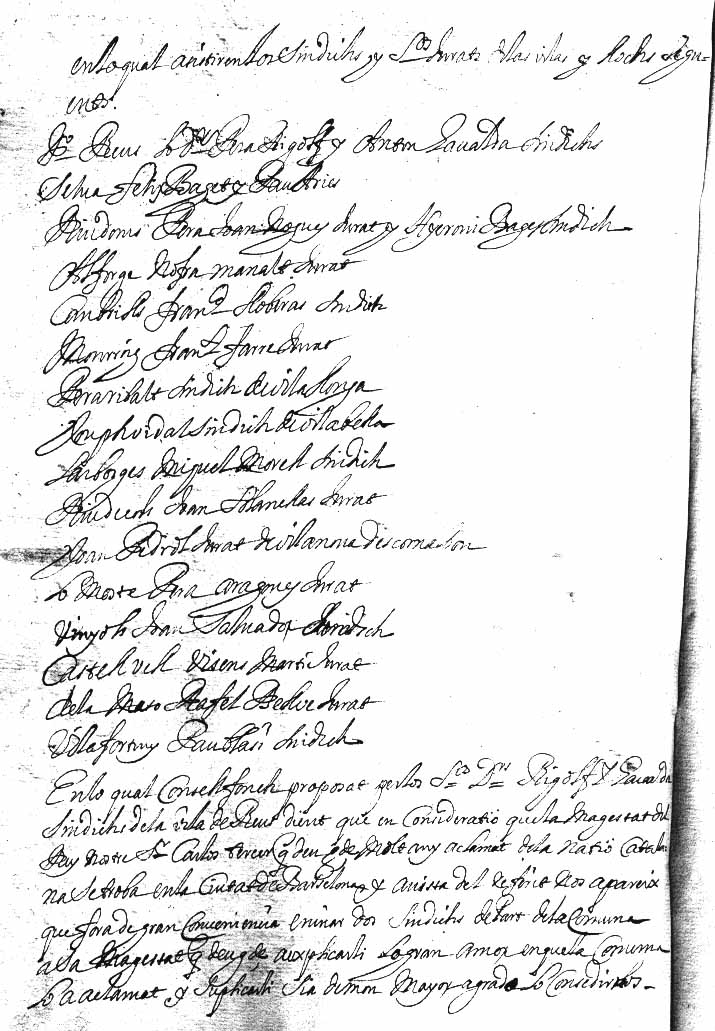 en lo qual asistiren los Sindichs y S.rs Jurats de las vilas y lochs segu=
ents.
P.o Reus lo D.r Pera Rigolf y Anton Gavalda Sindichs
Selva Felip Baget y Pau Aries
Riudoms Pera Joan Noguy Jurat y Hyeroni Bages Sindich
Alforge Nofra manalt Jurat
Cambrils fran.ch Roberas Sindich
Monroig fran.ch farre Jurat
Pera ribalt Sindich de vilallonga
Joseph vidal Sindich de vilabella
Lasborges Miquel Morell Sindich
Riudecols Joan Solanellas Jurat
Joan Pedrol Jurat de vilanova descornalbou
lo Moste Pera aragones Jurat
Vinyols Joan Salvador Sindich
Castellvell Visens Marti Jurat
de la Maso Rafel Jurat
Vilafortuny Pau blasi Sindich
En lo qual Consell fonch proposat per los S.rs D.rs Rigolf y Gavalda
Sindichs de la vila de Reus dient que en Consideratio que la Magestat del
Rey nostre S.r Carlos tercer q deu g.de Molt any aclamat de la natio Catala
na Se troba en la Ciutat de Barcelona y a vista del referit Nos apareix
que fora de gran Conveniencia eninar dos Sindichs de Part de la Comuna
a Sa Magestat q deu g.de a explicarli lo gran amor en que la Comuna
lo a aclamat y Suplicarli Sia de mon Mayor agrado lo Consedirlos-